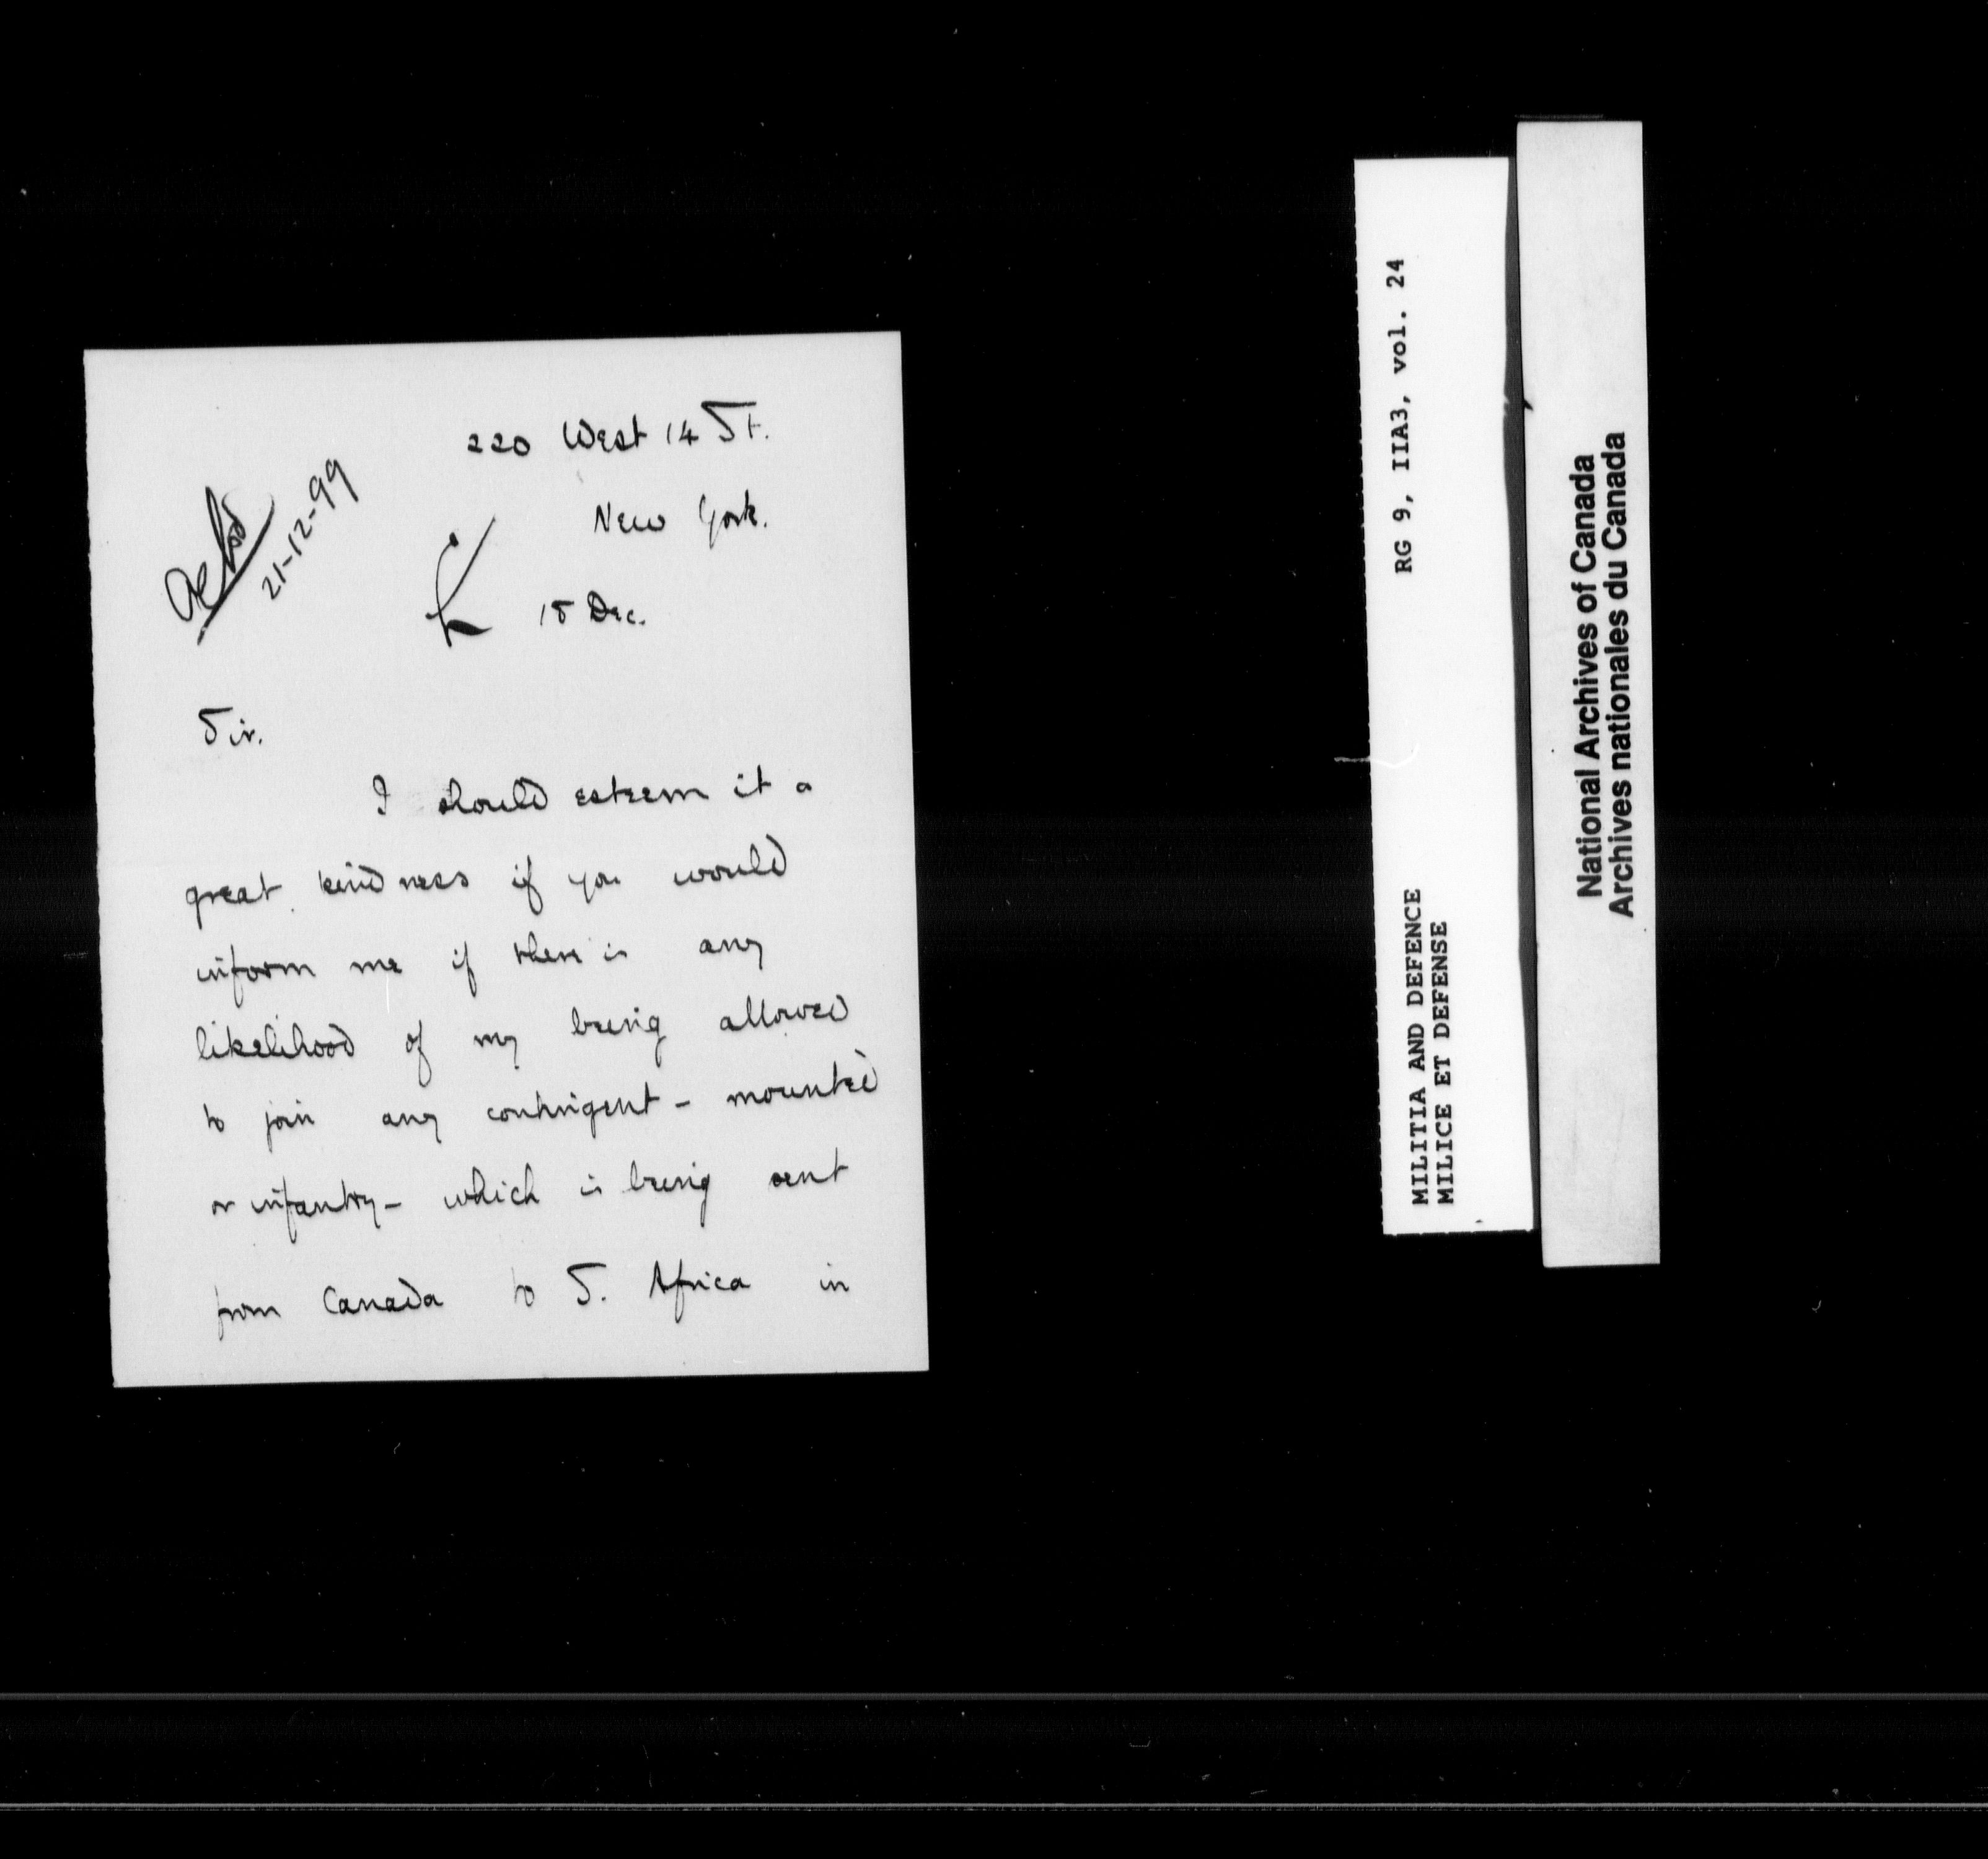 220 West 14 St.
New York.
Ackd
21-12-99
15 Dec.
Sir.
I should esteem it a
great kindness if you would
inform me if there is any
likelihood of my being allowed
to join any contingent - mounted
or infantry - which is being sent
from Canada to S. Africa in
RG 9, IIA3, vol. 24
MILITIA AND DEFENCE
MILICE ET DEFENSE
National Archives of Canada
Archives nationales du Canada